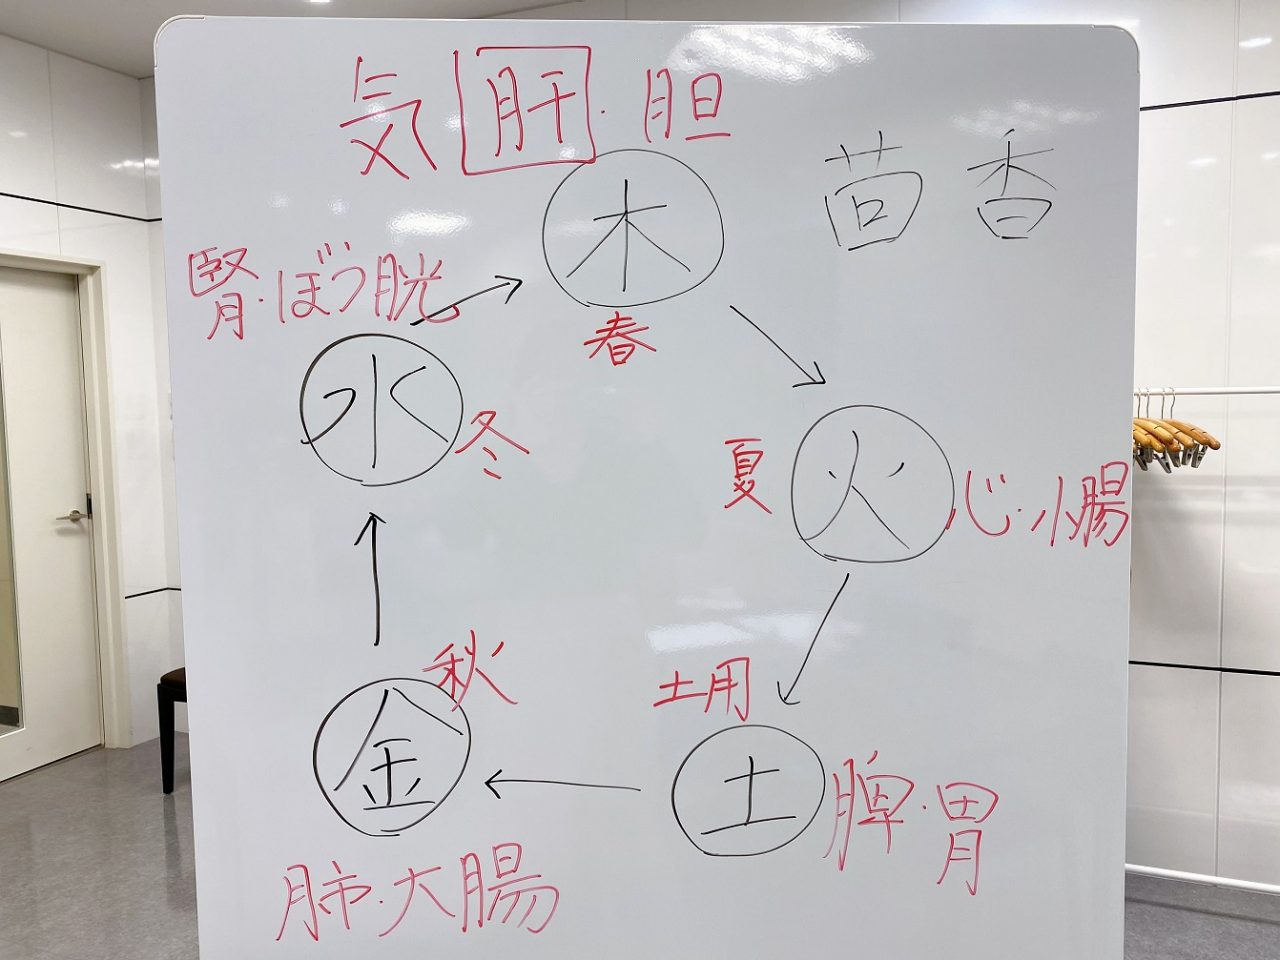 気 肝・胆
木
春
茴香
腎・ぼう胱
水
冬
夏
火
心・小腸
土用
土
脾・胃
秋
金
肺・大腸